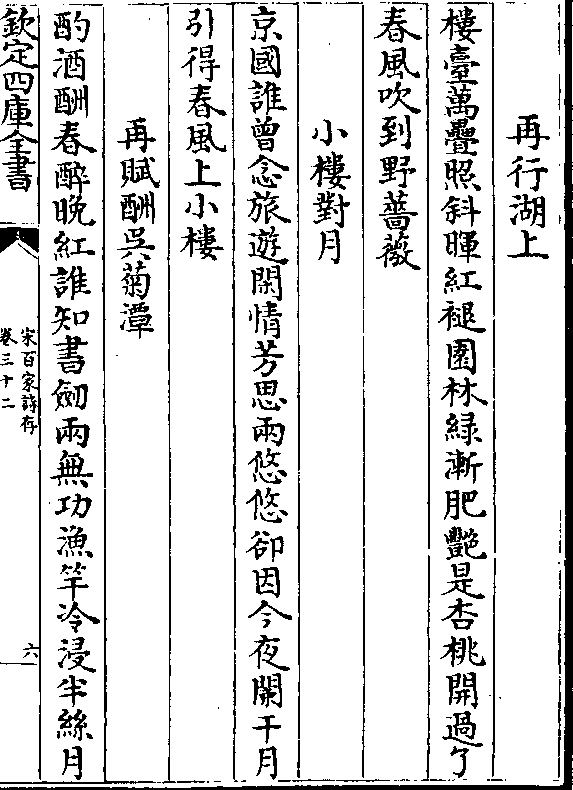 再行湖上
樓臺萬疊照斜暉紅褪園林緑漸肥艷是杏桃開過了
春風吹到野薔薇
小樓對月
京國誰曾念旅遊閑情芳思兩悠悠卻因今夜闌干月
引得春風上小樓
再賦酬吳菊潭
酌酒酬春醉晚紅誰知書劒兩無功漁竿冷浸半絲月
欽定四庫全書
宋百家詩存
卷三十二
六